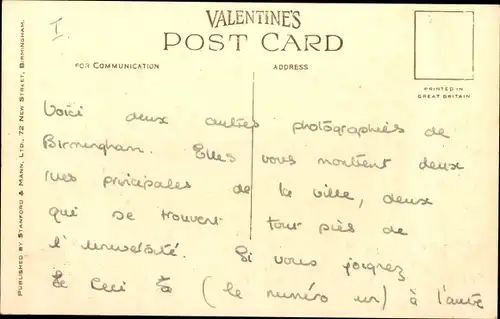 I
VALENTINE'S
POST CARD
FOR COMMUNICATION
ADDRESS
PRINTED IN
GREAT BRITAIN
PUBLISHED BY STANFORD & MANN, LTD., 72 NEW STREET, BIRMINGHAM.
Voici deux autres photographies de
Birmingham. Elles vous montrent deux
rues principales de la ville, deux
qui se trouvent tout près de
l'université. Si vous joignez
ceci (le numéro un) à l'autre